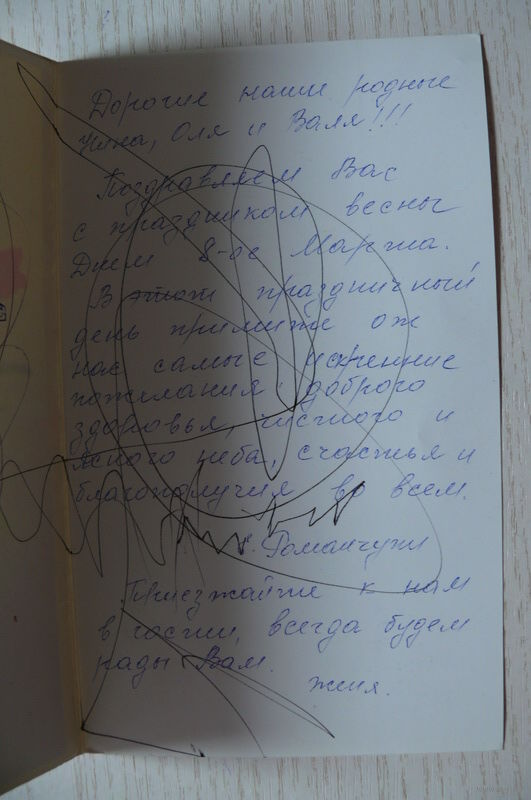 Дорогие наши родные
Инна, Оля и Валя!!!
Поздравляем Вас
с праздником весны
Днем 8-ое Марта.
В этот праздничный
день примите от
нас самые искренние
пожелания: доброго
здоровья, чистого и
ясного неба, счастья и
благополучия во всем.
Романчуки
Приезжайте к нам
в гости, всегда будем
рады Вам.
Женя.